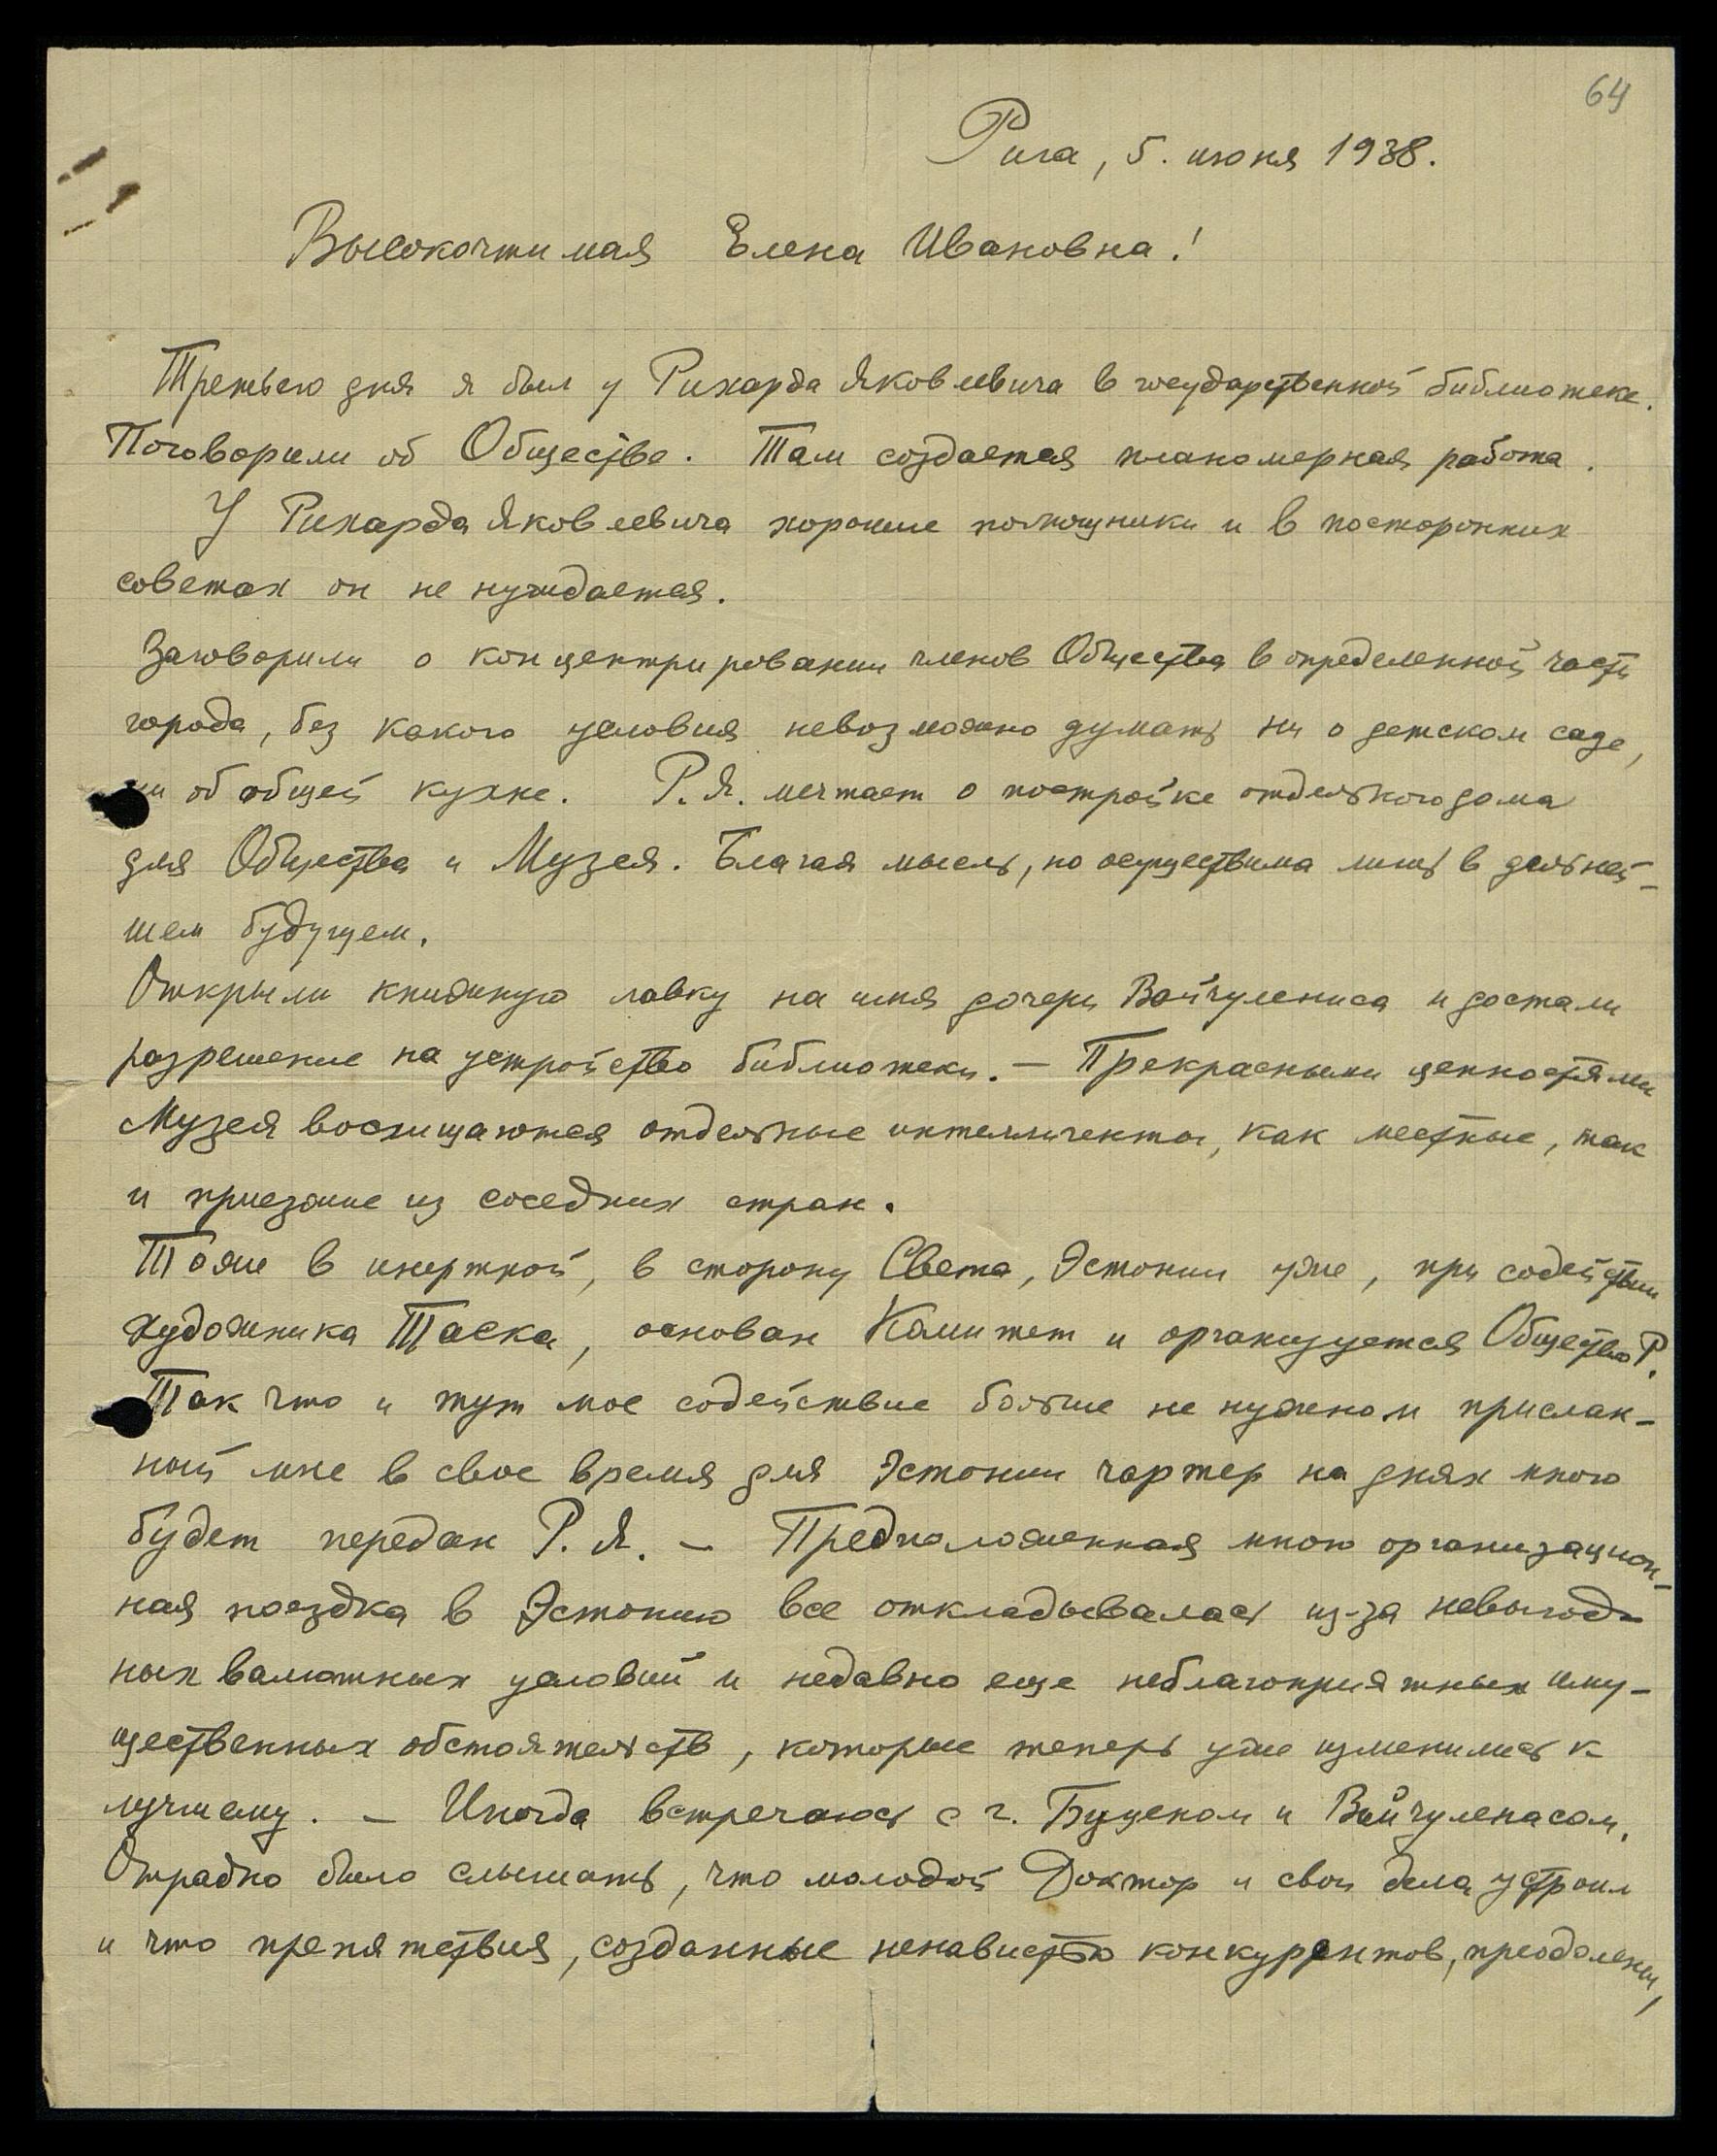 64
Рига, 5. июня 1938.
Высокочтимая Елена Ивановна!
Третьего дня я был у Рихарда Яковлевича в государственной библиотеке.
Поговорили об Обществе. Там создается планомерная работа.
У Рихарда Яковлевича хорошие помощники и в посторонних
советах он не нуждается.
Заговорили о концентрировании членов Общества в определенной части
города, без какого условия невозможно думать ни о детском саде,
ни об общей кухне. Р.Я. мечтает о постройке отдельного дома
для Общества и Музея. Благая мысль, но осуществима лишь в дальней-
шем будущем.
Открыли книжную лавку на имя дочери Вайчулениса и достали
разрешение на устройство библиотеки. — Прекрасными ценностями
Музея восхищаются отдельные интеллигенты, как местные, так
и приезжие из соседних стран.
Тоже в инертной, в сторону Света, Эстонии уже, при содействии
художника Таска, основан Комитет и организуется Общество Р.
Так что и тут мое содействие больше не нужно и прислан-
ный мне в свое время для Эстонии чартер на днях мною
будет передан Р. Я. — Предположенная мною организацион-
ная поездка в Эстонию все откладывалась из-за невыгод-
ных валютных условий и недавно еще неблагоприятных иму-
щественных обстоятельств, которые теперь уже изменились к
лучшему. — Иногда встречаюсь с г. Буценом и Вайчуленасом.
Отрадно было слышать, что молодой Доктор и свои дела устроил
и что препятствия, созданные ненавистью конкурентов, преодолены,